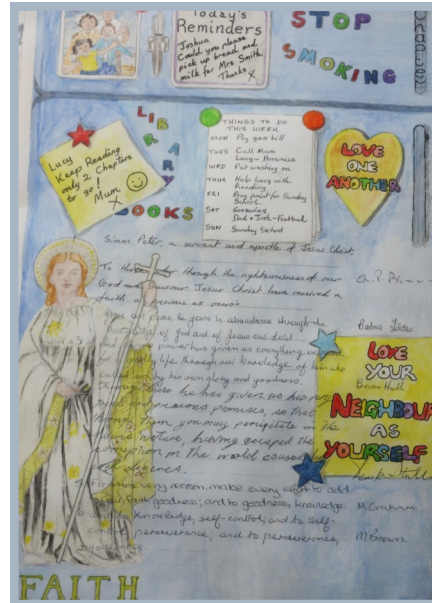 Today's
Reminders
Joshua
Could you please
pick up bread and
milk for Mrs. Smith.
Thanks X
STOP
SMOKING
LIBRARY
BOOKS
Lucy
Keep Reading
only 2 Chapters
to go!
Mum
X
THINGS TO DO
THIS WEEK
MON Pay gas bill
TUES Call Mum
Lucy - Brownies
WED Put washing on
THUR Help Lucy with
Reading
FRI Pay print for Sunday
School.
SAT Groceries
Dad + Josh - Football
SUN Sunday School
LOVE
ONE
ANOTHER
Simon Peter, a servant and apostle of Jesus Christ,
To those through the righteousness of our
God and Saviour Jesus Christ have received a
faith as precious as ours:
Grace and peace be yours in abundance through the
knowledge of God and of Jesus our Lord...
His divine power has given us everything we
need for a godly life through our knowledge of him who
called us by his own glory and goodness.
Through these he has given us his very
great and precious promises, so that
through them you may participate in the
divine nature, having escaped the
corruption in the world caused by
evil desires.
For this very reason, make every effort to add
to your faith goodness; and to goodness, knowledge;
and to knowledge, self-control; and to self-
control, perseverance; and to perseverance,
LOVE
YOUR
Brian Hall
NEIGHBOUR
AS
YOURSELF
M Graham
M Brown
FAITH